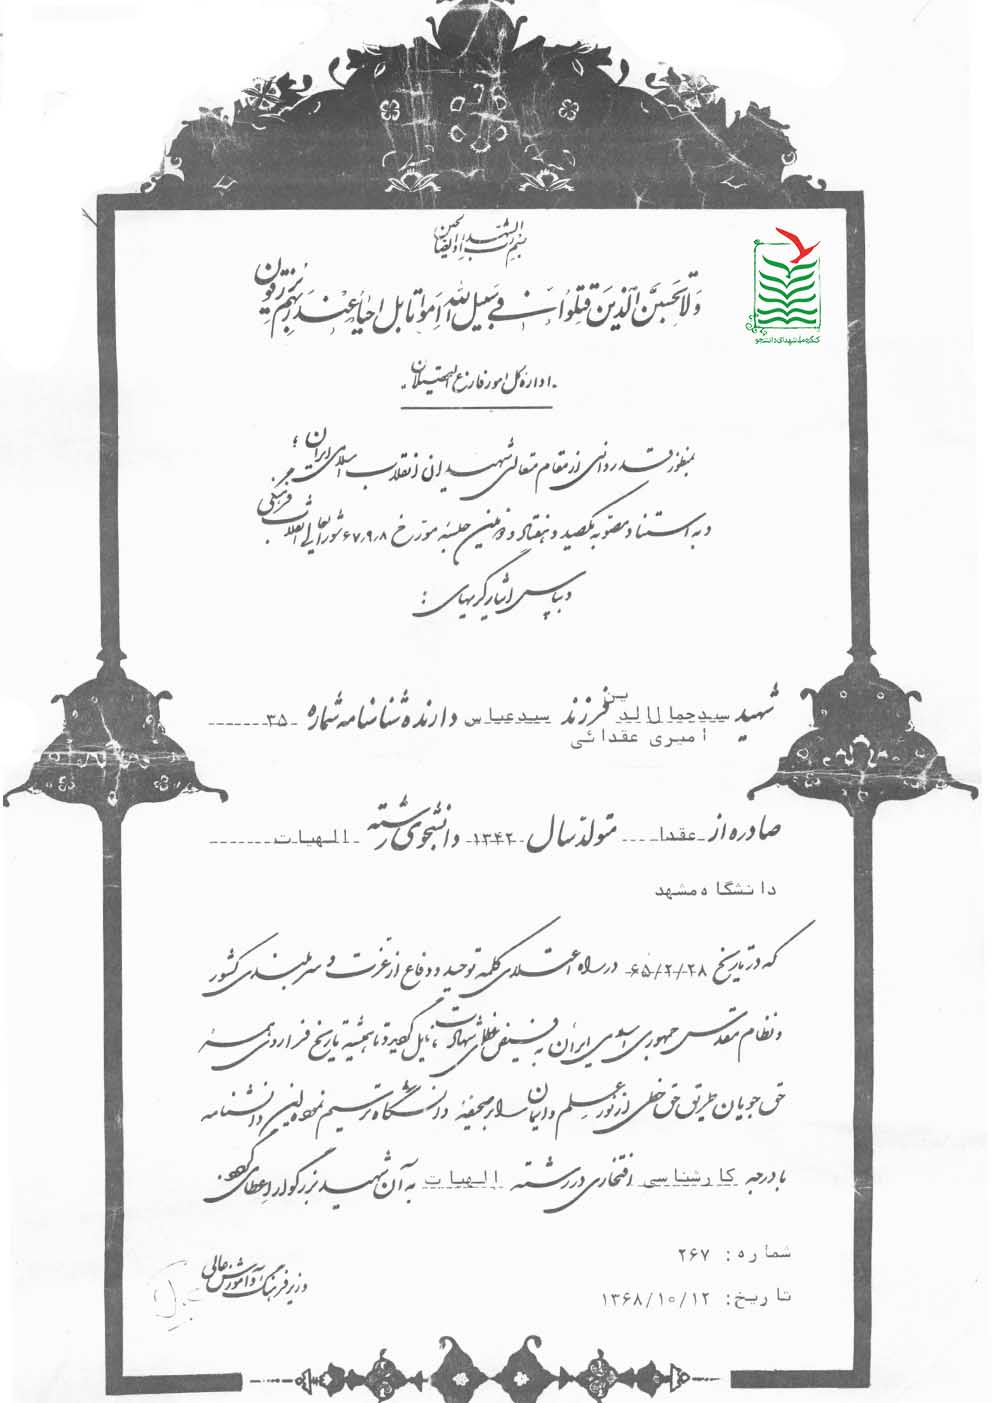 بسم رب الشهداء و الصالحین
ولا تحسبن الذین قتلوا فی سبیل الله امواتا بل احیاء عند ربهم یرزقون
اداره کل امور فارغ التحصیلان
بمنظور قدردانی از مقام متعالی شهیدان انقلاب اسلامی ایران ؛
و به استناد مصوبه یکصد و هفتاد و دومین جلسه مورخ ۶۷٫۹٫۸ شورایعالی انقلاب فرهنگی
و بپاس ایثارگریهای :
شهید سیدجمال الدین فرزند سیدعباس دارنده شناسنامه شماره ۳۵
امیری عقدائی
صادره از عقدا متولد سال ۱۳۴۲ دانشجوی رشته الهیات
دانشگاه مشهد
که در تاریخ ۶۵/۲/۲۸ در راه اعتلای کلمه توحید و دفاع از عزت و سربلندی کشور
و نظام مقدس جمهوری اسلامی ایران به فیض عظمای شهادت نایل گردید و تا همیشه تاریخ فرا روی همه
حق جویان طریق حق خطی از نور علم و ایمان را بر صحیفه دانشگاه ترسیم نموده این دانشنامه
با درجه کارشناسی افتخاری در رشته الهیات به آن شهید بزرگوار اعطا می گردد.
شماره: ۲۶۷
تاریخ: ۱۳۶۸/۱۰/۱۲
وزیر فرهنگ و آموزش عالی
کنگره ملی شهدای دانشجو